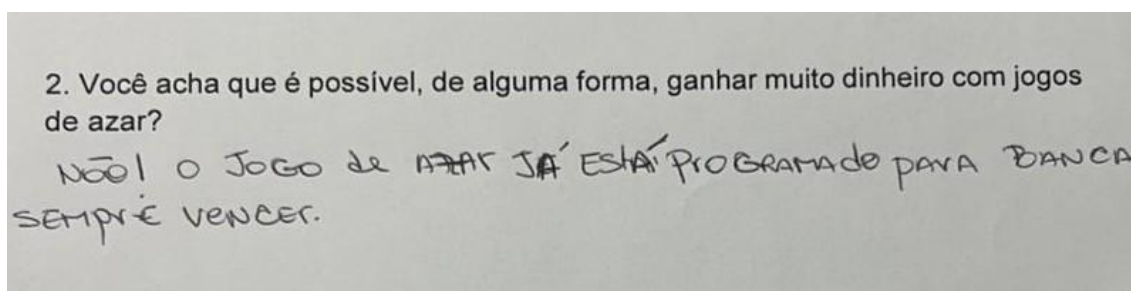 2. Você acha que é possível, de alguma forma, ganhar muito dinheiro com jogos
de azar?
NÃO! O JOGO de AZAR JÁ ESTÁ PROGRAMADO PARA BANCA
SEMPRE VENCER.